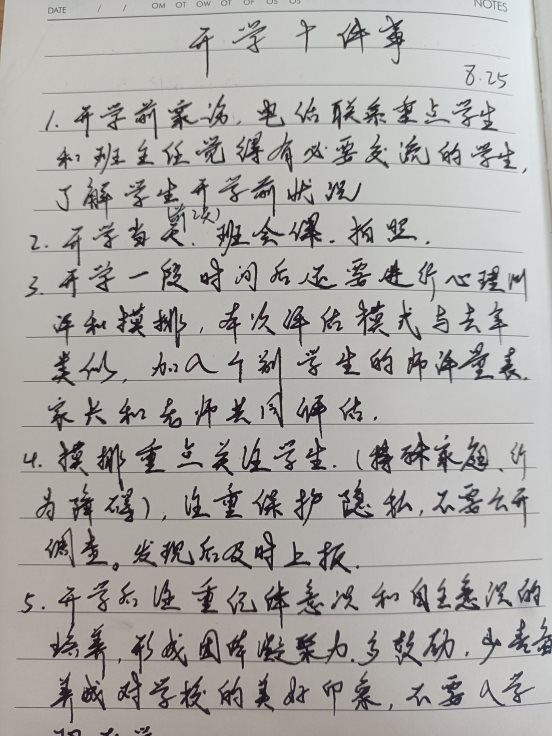 DATE / / MO TU WE TH FR SA SU
NOTES
开学十件事
8.25
1. 开学前家访、电话联系重点学生
和班主任觉得有必要交流的学生,
了解学生开学前状况
(前2天)
2. 开学当天、班会课、拍照.
3. 开学一段时间后还要进行心理测
评和摸排,本次评估模式与去年
类似,加入个别学生的师评量表,
家长和老师共同评估.
4. 摸排重点关注学生.(特殊家庭、行
为障碍),注重保护隐私,不要公开
调查。发现后及时上报.
5. 开学后注重纪律意识和自主意识的
培养,形成团体凝聚力.多鼓励,少责备
养成对学校的美好印象,不要入学